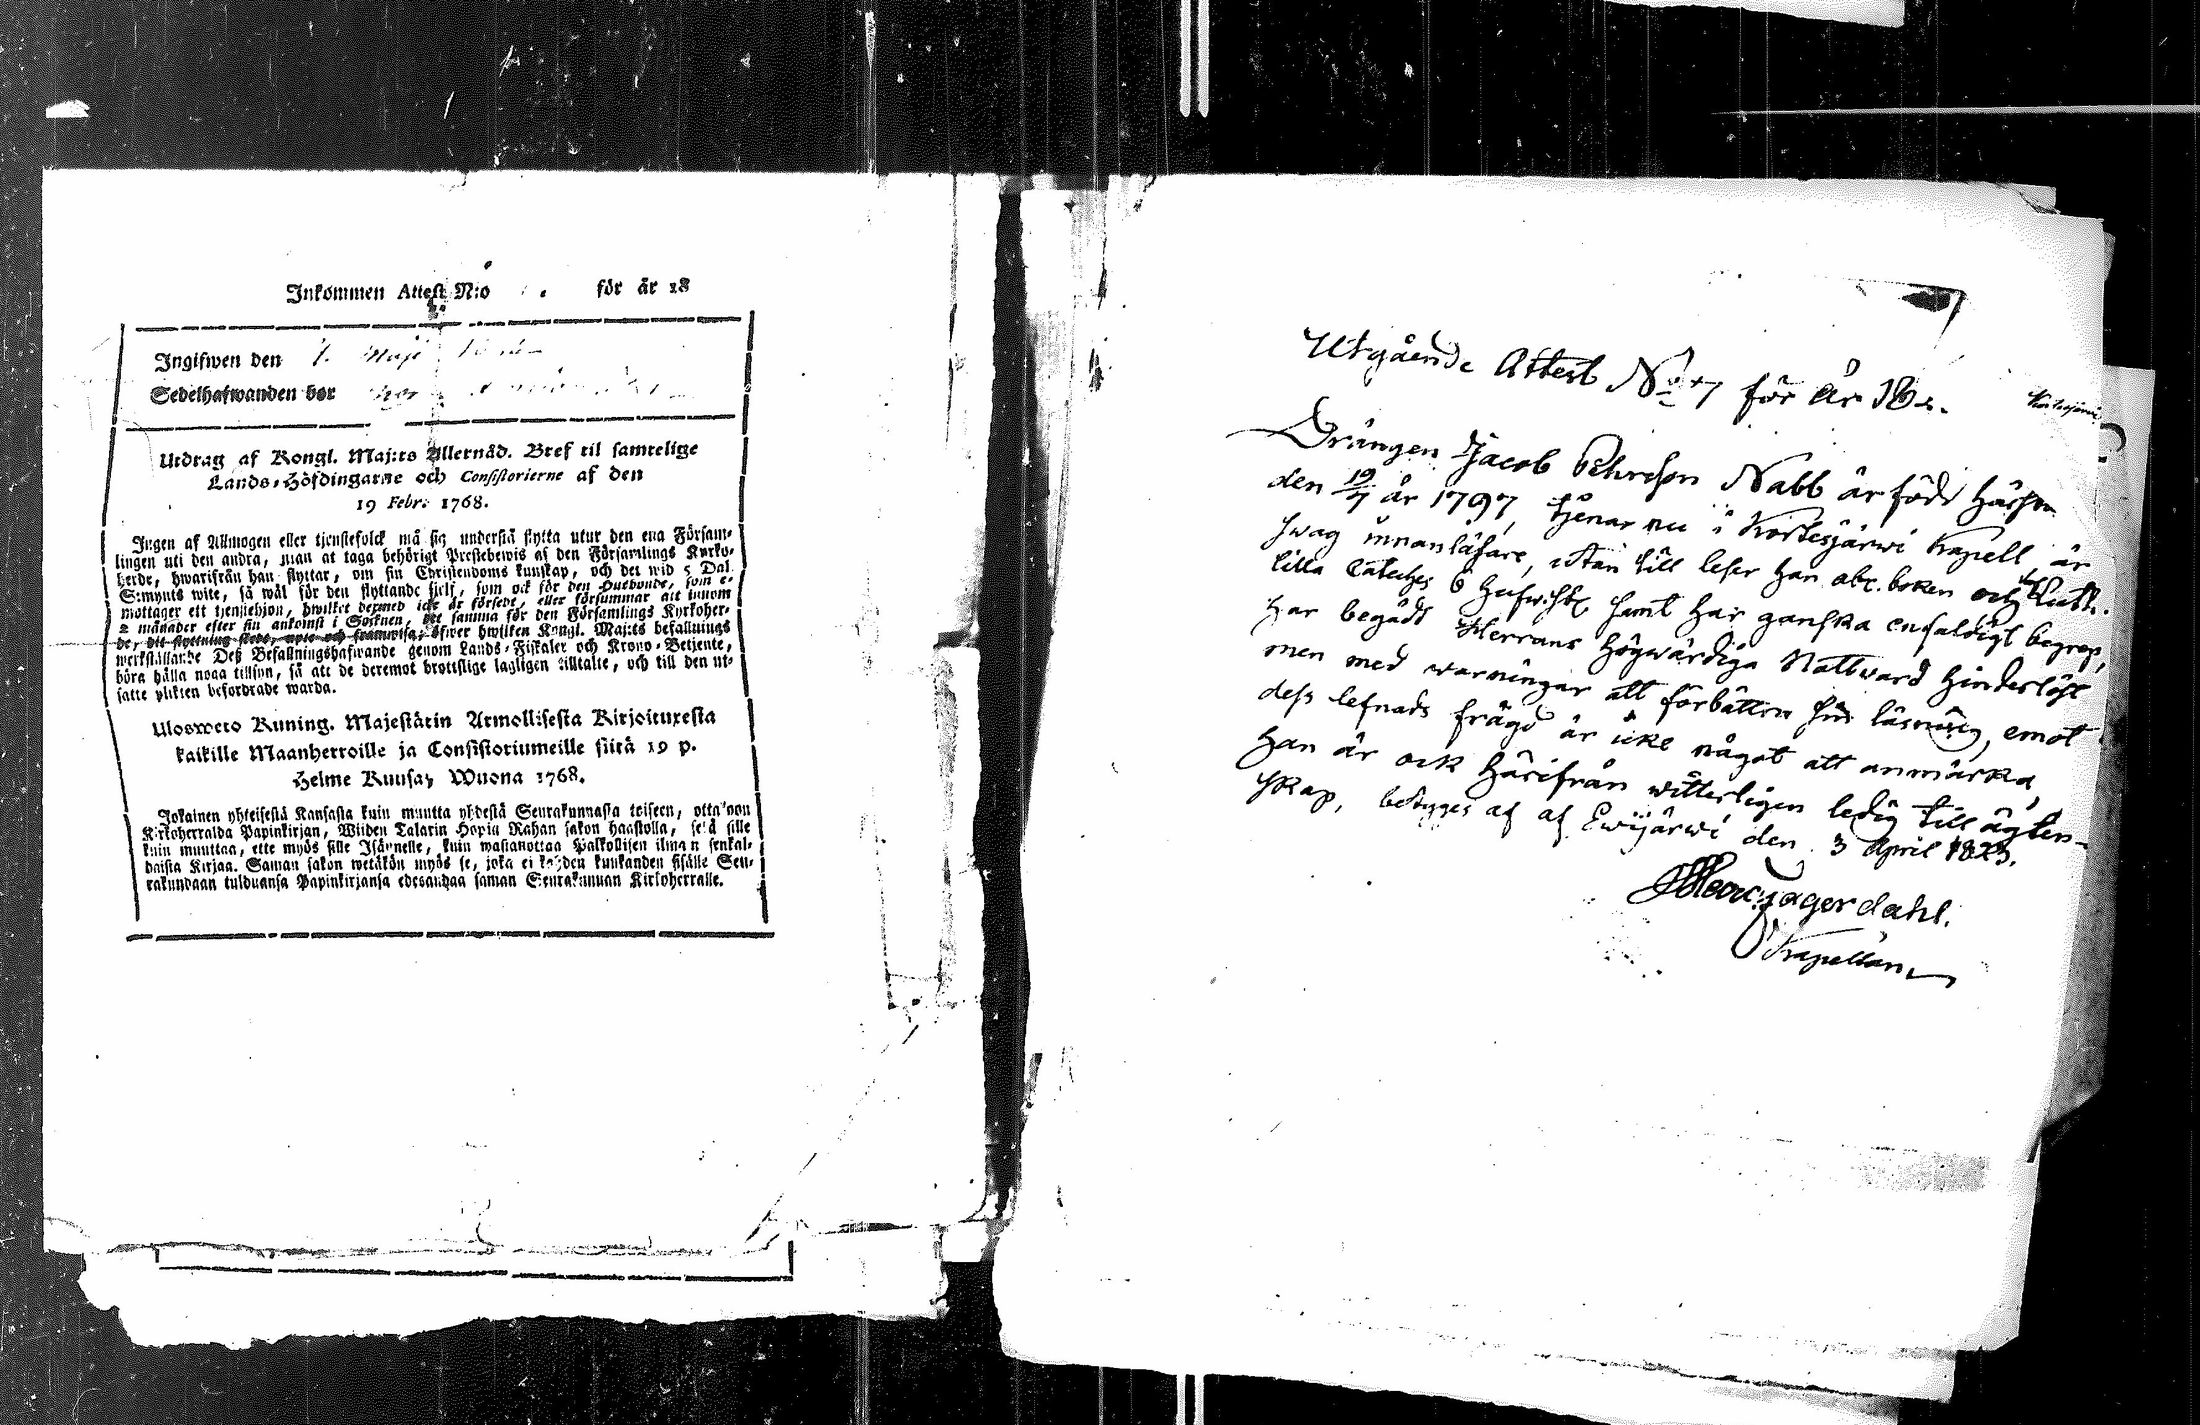 Inkommen Attest N:o för år 18
Ingifwen den 1. Maji
Sedelhafwanden bor
Utdrag af Kongl. Maj:ts Allernåd. Bref til samtelige
Lands-Höfdingarne och Consistorierne af den
19 Febr. 1768.
Ingen af Allmogen eller tjenstefolck må sig understå flytta utur den ena Försam-
lingen uti den andra, utan at taga behörigt Prestebewis af den Församlings Kyrko-
herde, hwarifrån han flyttar, om sin Christendoms kunskap, och det wid 5 Dal.
S:mynts wite, så wäl för den flyttande sjelf, som ock för den Husbonde, som e-
mottager ett tjenstehion, hwilket dermed icke är försedt, eller försummar att innom
2 månader efter sin ankomst i Soknen, det samma för den Församlings Kyrkoher-
de, dit flyttning skedt, upte och framwisa; öfwer hwilken Kongl. Maj:ts befallnings
werkställande Deß Befallningshafwande genom Lands-Fiskaler och Krono-Betjente,
böra hålla noga tillsyn, så att de deremot brottslige lagligen tilltalte, och till den ut-
satte plikten befordrade warda.
Ulosweto Kuning. Majestätin Armollisesta Kirjoituxesta
kaikille Maanherroille ja Consistoriumeille siitä 19 p.
Helme Kuusa, Wuona 1768.
Jokainen yhteisestä Kansasta kuin muutta yhdestä Seurakunnasta toiseen, otta'oon
Kirkoherralda Papinkirjan, Wiiden Talarin Hopia Rahan sakon haastolla, sekä sille
kuin muuttaa, ette myös sille Isännelle, kuin wastanottaa Palkollisen ilman senkal-
daista Kirjaa. Saman sakon wetäkön myös se, joka ei kahden kuukanden sisälle Seu-
rakundaan tulduansa Papinkirjansa edesandaa saman Seurakunnan Kirkoherralle.
Utgående Attest No 7 för år 18
Kortesjärvi
Drängen Jacob Pehrsson Nabb är född härson
den 19/7 år 1797, tjenar nu i Kortesjärwi Kapell, är
swag innanläsare, utan till leser han abc. boken och Luth.
lilla Cateches 6 hufwdst samt har ganska enfaldigt begrep,
har begådt Herrans Högwärdiga Nattward hinderlöst
men med warningar att förbättra sin läsning, emot
dess lefnads frägd är icke något att anmärka,
han är ock härifrån witterligen ledig till ägten-
skap, betyges af af Ewijärwi den 3 April 1823.
Jagerdahl.
Kapellan